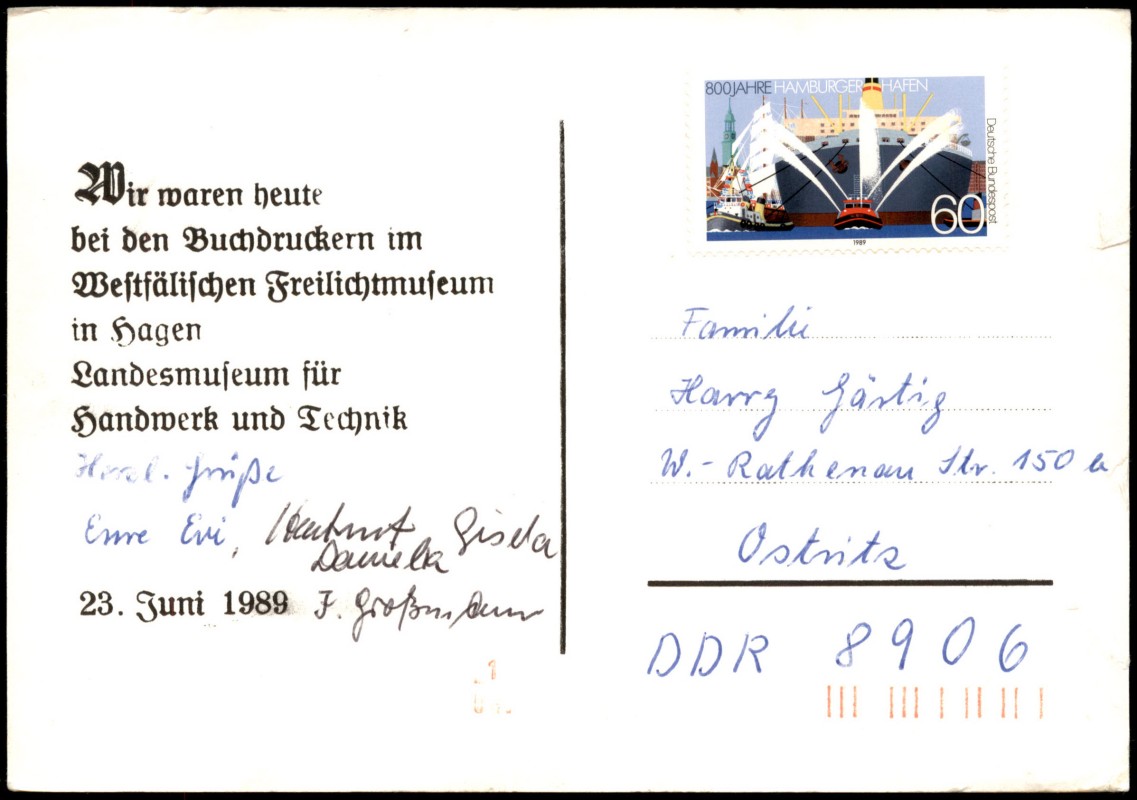 Wir waren heute
bei den Buchdruckern im
Westfälischen Freilichtmuseum
in Hagen
Landesmuseum für
Handwerk und Technik
Herzl. Grüße
Eure Evi, Hartmut Gisela
Daniela
23. Juni 1989 F. Großmann
800 JAHRE HAMBURGER HAFEN
Deutsche Bundespost
60
1989
Familie
Harry Gärtig
W.-Rathenau Str. 150 a
Ostritz
DDR 8906